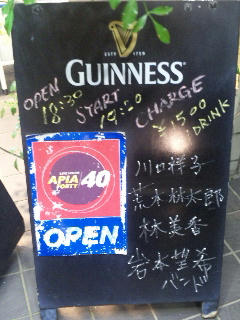 ESTD 1759
GUINNESS
OPEN START CHARGE
18:30 19:20 ¥1,500
DRINK
LIVE HOUSE
APIA 40
FORTY
OPEN
川口祥子
荒木林太郎
林美香
岩本望希
バンド